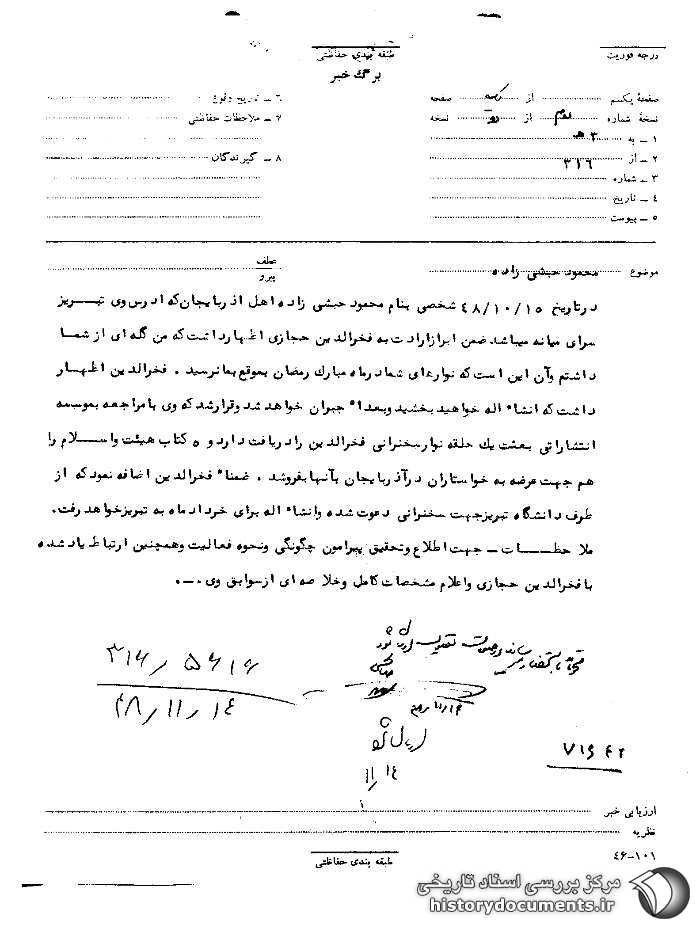 درجه فوریت
طبقه بندی حفاظتی
برگ خبر
صفحهٔ یکم از یک صفحه
نسخهٔ شماره دوم از دو نسخه
۱ – به ۳ هـ
۲ – از ۳۱۶
۳ – شماره
۴ – تاریخ
۵ – پیوست
۶ – تاریخ وقوع
۷ – ملاحظات حفاظتی
۸ – گیرندگان
موضوع محمود حبشی زاده
عطف
پیرو
درتاریخ ۴۸/۱۰/۱۵ شخصی بنام محمود حبشی زاده اهل آذربایجان که ادرس وی تبریز
سرای میانه میباشد ضمن ابرازارادت به فخرالدین حجازی اظهارداشت که من گله ای از شما
داشتم وآن این است که نوارهای شمادرماه مبارك رمضان بموقع بمانرسید . فخرالدین اظهار
داشت که انشاء اله خواهید بخشید وبعداء جبران خواهد شد وقرارشد که وی بامراجعه بموسسه
انتشاراتی بعثت یك حلقه نوارسخنرانی فخرالدین رادریافت دارد و ۵ کتاب هیئت واسلام را
هم جهت عرضه به خواستاران درآذربایجان بآنها بفروشد . ضمناء فخرالدین اضافه نمود که از
طرف دانشگاه تبریزجهت سخنرانی دعوت شده وانشاء اله برای خرداد ماه به تبریزخواهد رفت.
ملاحظات – جهت اطلاع وتحقیق پیرامون چگونگی ونحوه فعالیت وهمچنین ارتباط یاد شده
با فخرالدین حجازی واعلام مشخصات کامل وخلاصه ای ازسوابق وی .–.
۳۱۶/۵۶۱۶
۴۸/۱۱/۱۴
۱۱/۱۴
۷۱۶۴۲
ارزیابی خبر
نظریه
طبقه بندی حفاظتی
۴۶-۱۰۱
مرکز بررسی اسناد تاریخی
historydocuments.ir